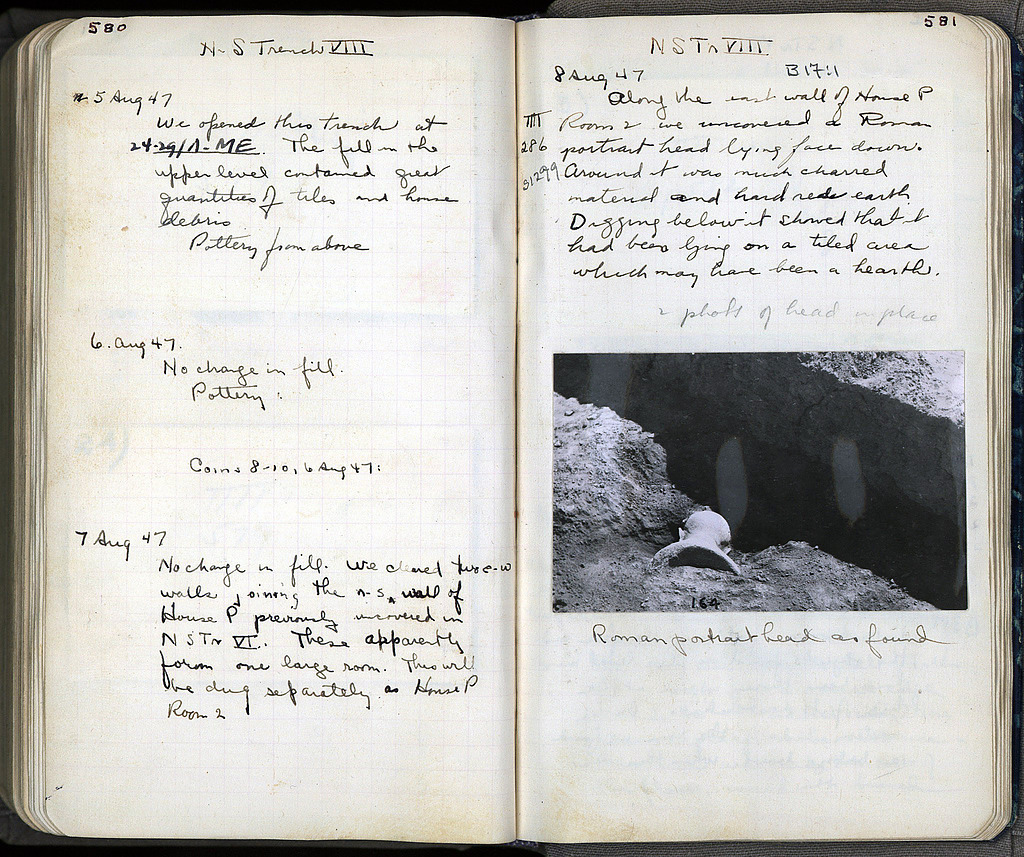 580
N-S Trench VIII
5 Aug 47
We opened this trench at
24-29/Λ-ME. The fill in the
upper level contained great
quantities of tiles and house
debris
Pottery from above
6. Aug 47.
No change in fill.
Pottery:
Coins 8-10, 6 Aug 47:
7 Aug 47
No change in fill. We cleared two e-w
walls joining the n-s wall of
House P previously uncovered in
NSTr VI. These apparently
form one large room. This will
be dug separately as House P
Room 2
581
NSTr VIII
8 Aug 47 B 1711
Along the east wall of House P
Room 2 we uncovered a Roman
286 portrait head lying face down.
S1299 Around it was much charred
material and hard red earth
Digging below it showed that it
had been lying on a tiled area
which may have been a hearth.
2 photos of head in place
164
Roman portrait head as found